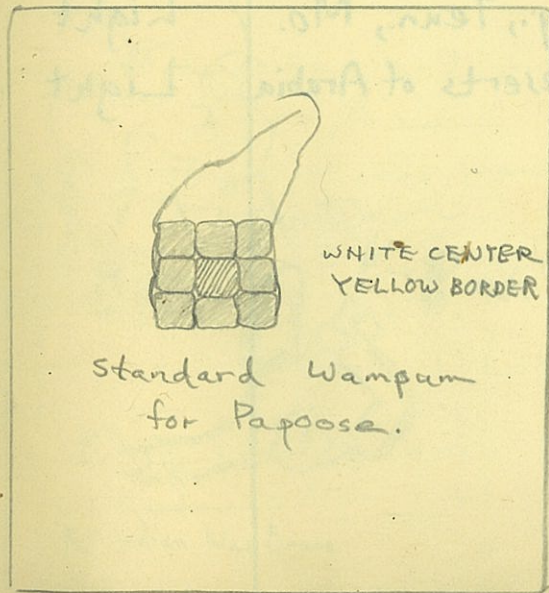 WHITE CENTER
YELLOW BORDER
Standard Wampum
for Papoose.